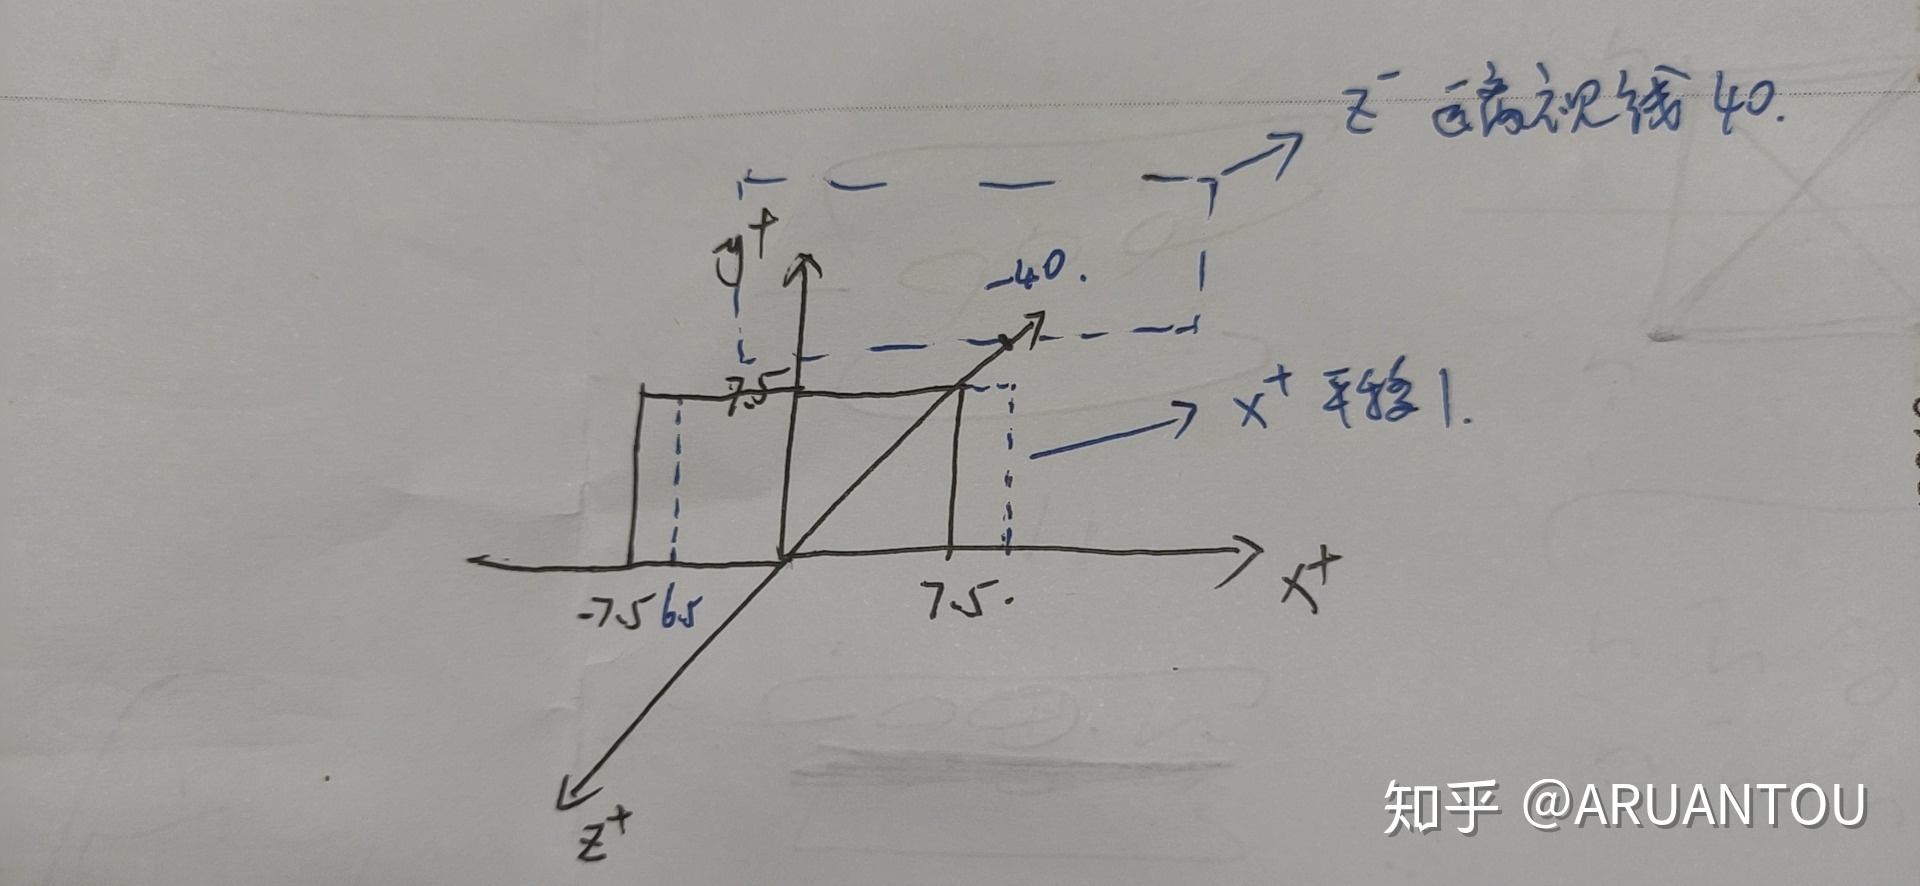 z⁻ 远离视线 40.
y⁺
-40.
7.5
x⁺ 平移 1.
-7.5 6.5
7.5.
x⁺
z⁺
知乎 @ARUANTOU